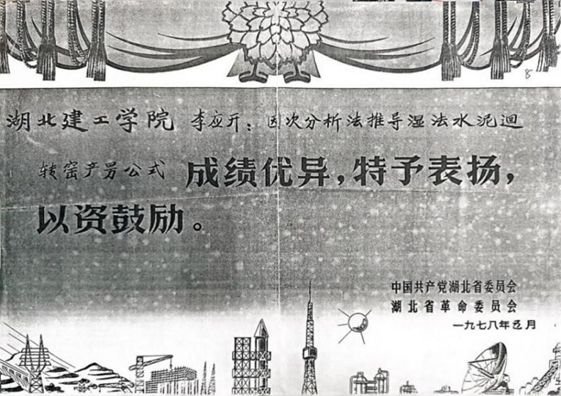 8
湖北建工学院 李应开：因次分析法推导湿法水泥迴
转窑产另公式 成绩优异，特予表扬，
以资鼓励。
中国共产党湖北省委员会
湖北省革命委员会
一九七八年五月